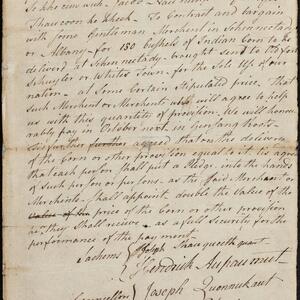 Shauscoon he Sheek — To Contract and bargain
with some Gentleman Merchent in Schennectady
or Albany — for 150 Bushels of Indian Corn to be
deliverd at Schennectady — brought sent to the fort
Schuyler or Whites Town — for the Sole Use of our
nation — at Some Certain Stipulated price. that
such Merchent or Merchents who will agree to help
us with this quantity of provision. We will honour
ably pay in October next in Genseng roots —
It is further further agreed that on the delivery
of the Corn or other provision equal to it is agree
that each person shall put a Pledge into the hands
of such person or persons — as the said Merchant or
Merchants — shall appoint, double the Value of the
Value of the price of the Corn or other provision
he, they shall recive — as a full Security for the
performance of the payment —
Sachems
Hendrick Aupaumut
Joseph Quonnukaut